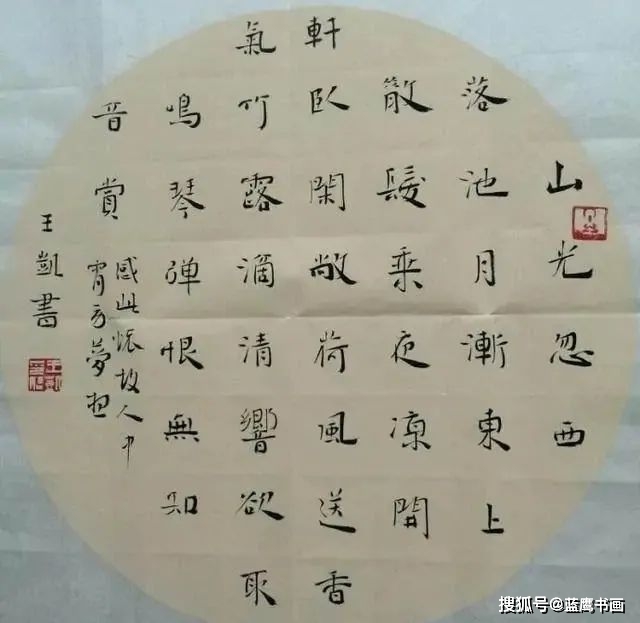 山光忽西
落池月漸東上
散髮乘夜凉開
軒臥閑敞荷風送香
氣竹露滴清響欲取
鳴琴彈恨無知
音賞
感此懷故人中
宵勞夢想
王凱書
搜狐号@蓝鹰书画